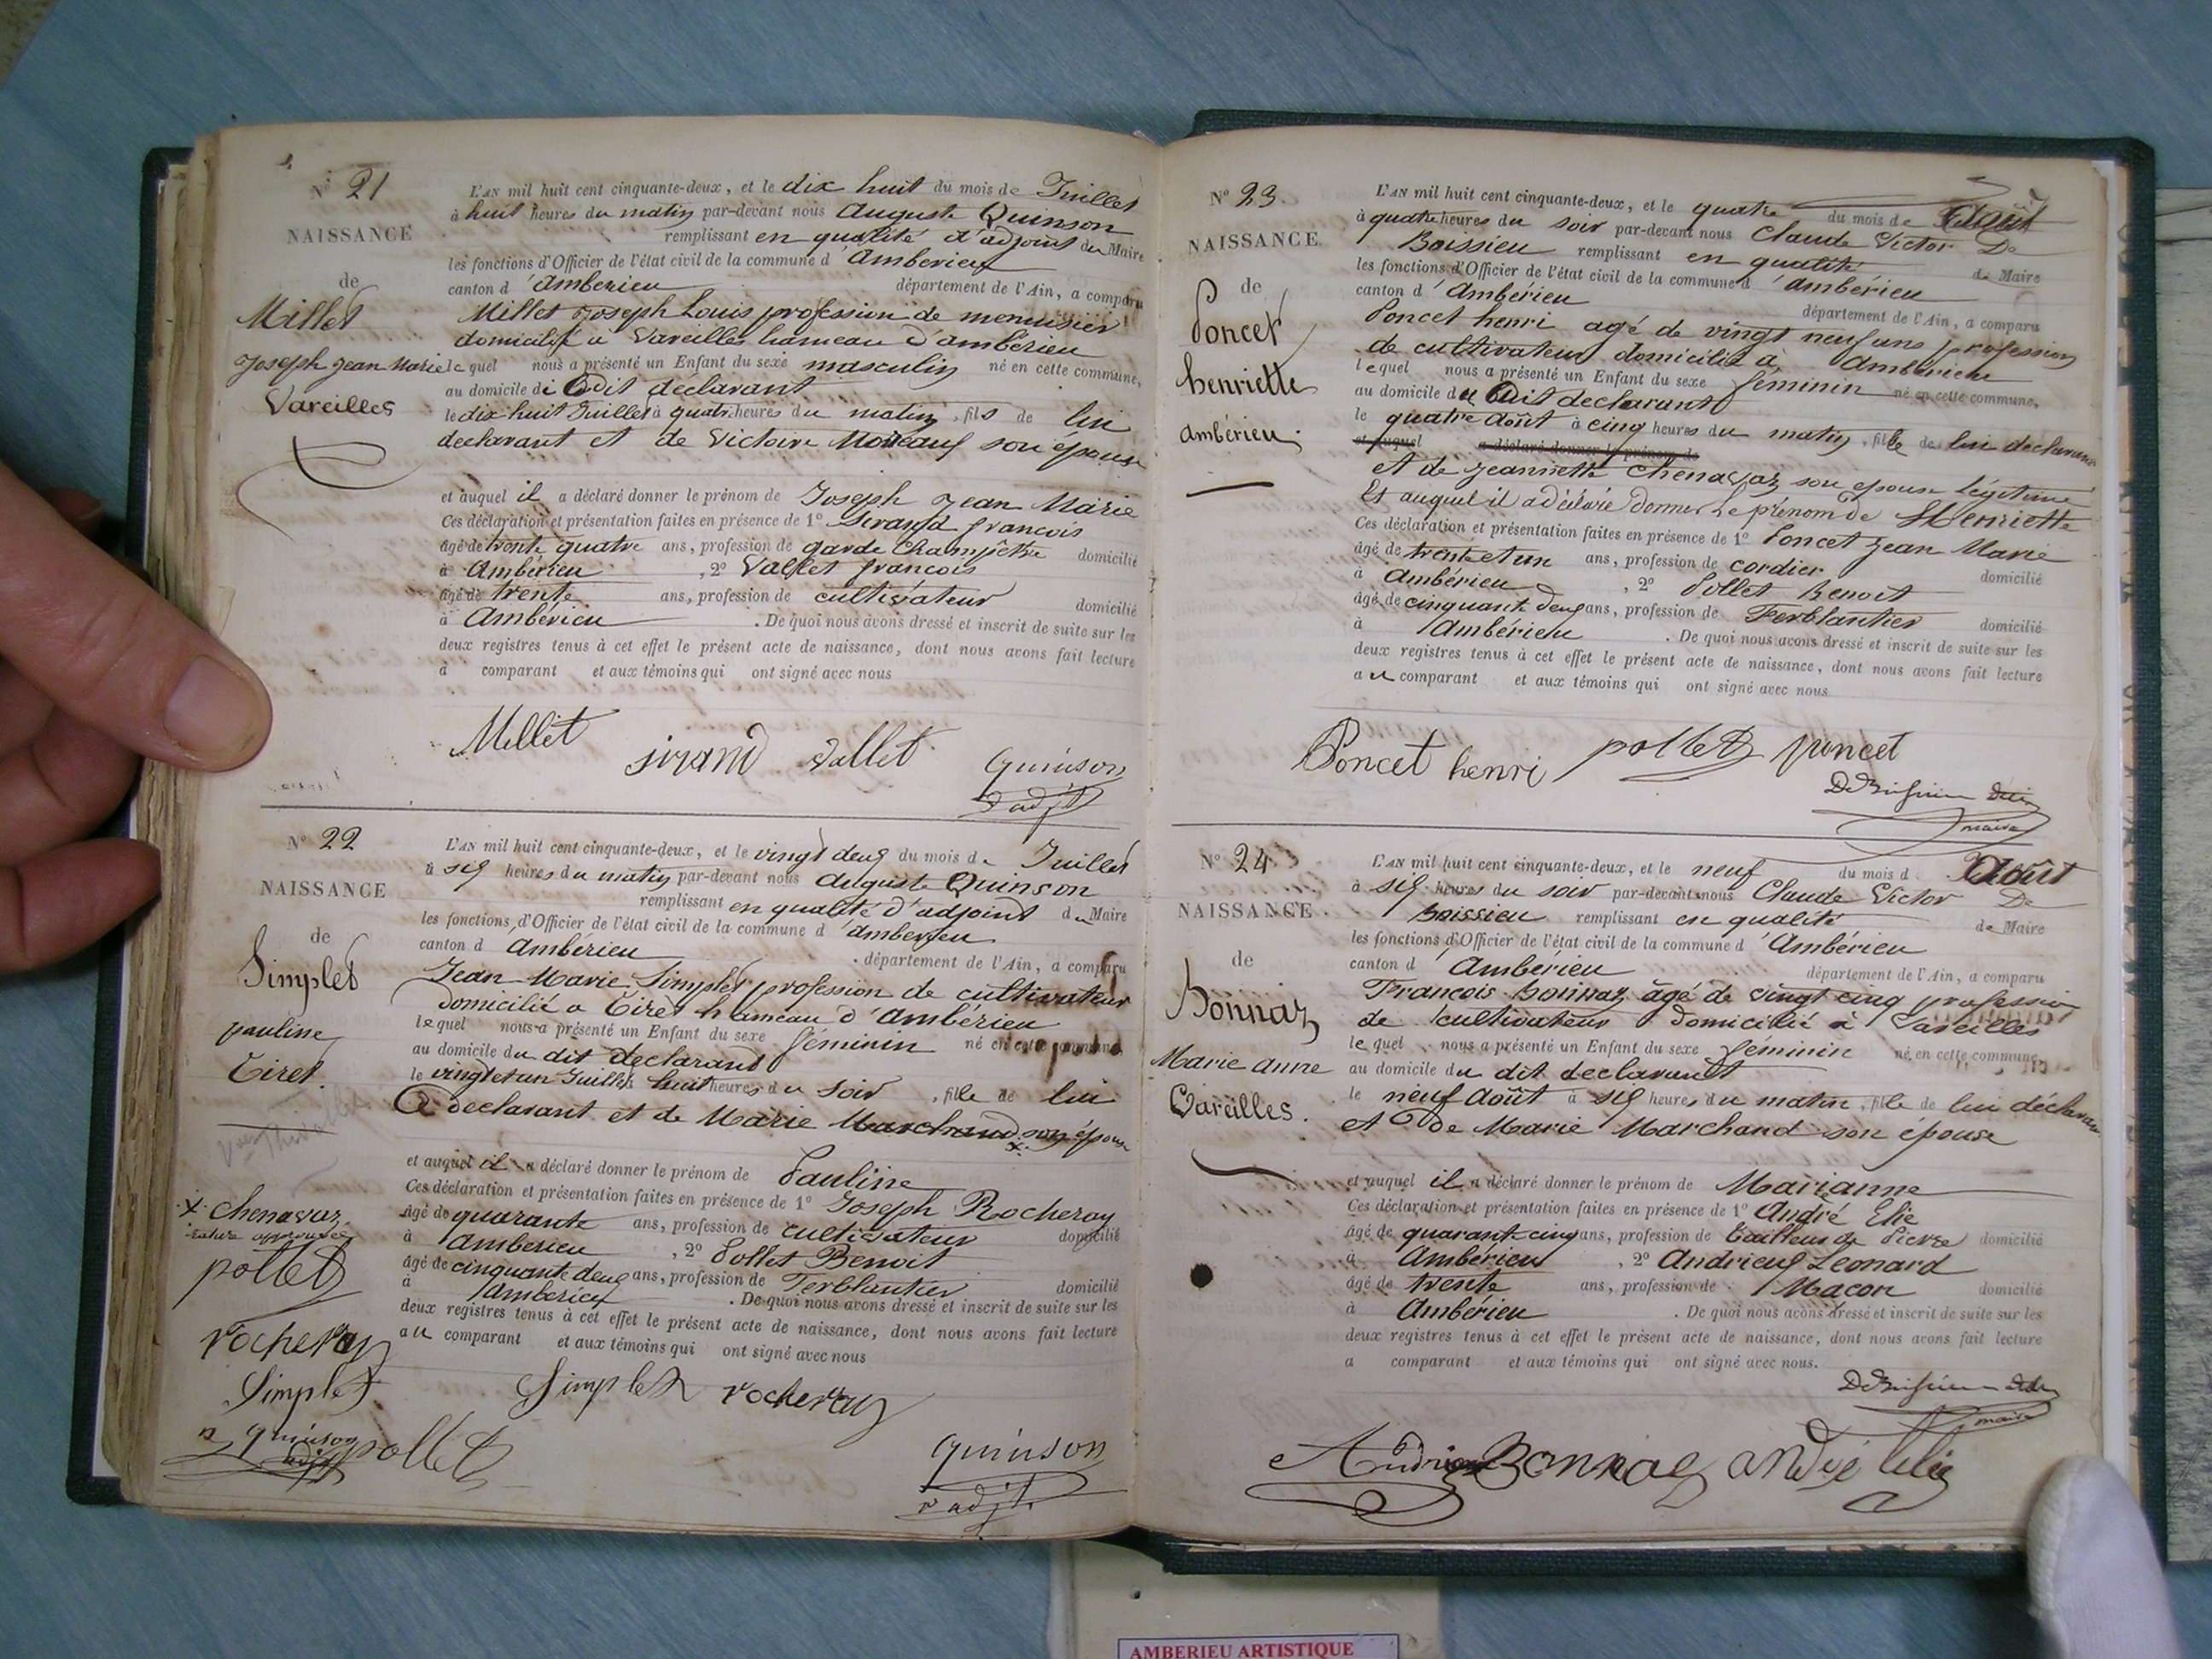 N° 21
NAISSANCE
de
Millet
Joseph Jean Marie
Vareilles
L'AN mil huit cent cinquante-deux, et le dix huit du mois de Juillet
à huit heures du matin par-devant nous Auguste Quinson
remplissant en qualité d'adjoint du Maire
les fonctions d'Officier de l'état civil de la commune d'Ambérieu
canton d'Ambérieu département de l'Ain, a comparu
Millet Joseph Louis profession de menuisier
domicilié à Vareilles hameau d'ambérieu
lequel nous a présenté un Enfant du sexe masculin né en cette commune,
au domicile du dit declarant
le dix huit Juillet à quatre heures du matin, fils de lui
declarant et de Victoire son épouse
et auquel il a déclaré donner le prénom de Joseph Jean Marie
Ces déclaration et présentation faites en présence de 1° Sirand françois
âgé de trente quatre ans, profession de garde Champêtre domicilié
à Ambérieu, 2° Vallet francois
âgé de trente ans, profession de cultivateur domicilié
à Ambérieu. De quoi nous avons dressé et inscrit de suite sur les
deux registres tenus à cet effet le présent acte de naissance, dont nous avons fait lecture
à comparant et aux témoins qui ont signé avec nous
Millet sirand Vallet quinson
adjt
N° 22
NAISSANCE
de
Simplet
pauline
Tiret
L'AN mil huit cent cinquante-deux, et le vingt deux du mois de Juillet
à six heures du matin par-devant nous Auguste Quinson
remplissant en qualité d'adjoint du Maire
les fonctions d'Officier de l'état civil de la commune d'Amberieu
canton d Ambérieu département de l'Ain, a comparu
Jean Marie Simplet profession de cultivateur
domicilié a Tiret hameau d'Ambérieu
lequel nous a présenté un Enfant du sexe féminin né en cette commune,
au domicile du dit declarant
le vingt et un Juillet huit heures du soir, fille de lui
declarant et de Marie Marchand x son épouse
et auquel il a déclaré donner le prénom de Pauline
Ces déclaration et présentation faites en présence de 1° Joseph Rocheray
âgé de quarante ans, profession de cultivateur domicilié
à Amberieu, 2° Pollet Benoit
âgé de cinquante deux ans, profession de Ferblantier domicilié
à Amberieu. De quoi nous avons dressé et inscrit de suite sur les
deux registres tenus à cet effet le présent acte de naissance, dont nous avons fait lecture
au comparant et aux témoins qui ont signé avec nous
x Chenavaz
rature approuvée
pollet
rocheray
Simplet
quinson
adjt
pollet
Simplet rocheray
quinson
adjt
N° 23
NAISSANCE
de
Poncet
henriette
ambérieu
L'AN mil huit cent cinquante-deux, et le quatre du mois de Août
à quatre heures du soir par-devant nous Claude Victor De
Boissieu remplissant en qualité de Maire
les fonctions d'Officier de l'état civil de la commune d'ambérieu
canton d'Ambérieu département de l'Ain, a comparu
Poncet henri agé de vingt neuf ans profession
de cultivateur domicilié à Ambérieu
lequel nous a présenté un Enfant du sexe féminin né en cette commune,
au domicile du dit declarant
le quatre Août à cinq heures du matin, fille de lui declarant
et auquel a déclaré donner le prénom de
et de Jeannette Chenavaz son epouse légitime
Et auquel il a déclaré donner le prénom de Henriette
Ces déclaration et présentation faites en présence de 1° Poncet Jean Marie
âgé de trente et un ans, profession de cordier domicilié
à Ambérieu, 2° Pollet Benoit
âgé de cinquante deux ans, profession de Ferblantier domicilié
à Ambérieu. De quoi nous avons dressé et inscrit de suite sur les
deux registres tenus à cet effet le présent acte de naissance, dont nous avons fait lecture
au comparant et aux témoins qui ont signé avec nous
Poncet henri pollet poncet
DeBoissieu
maire
N° 24
NAISSANCE
de
Bonnaz
Marie anne
Vareilles.
L'AN mil huit cent cinquante-deux, et le neuf du mois d Août
à six heures du soir par-devant nous Claude Victor De
Boissieu remplissant en qualité de Maire
les fonctions d'Officier de l'état civil de la commune d'Ambérieu
canton d'Ambérieu département de l'Ain, a comparu
François Bonnaz âgé de vingt cinq profession
de cultivateur domicilié à Vareilles
lequel nous a présenté un Enfant du sexe féminin né en cette commune,
au domicile du dit declarant
le neuf Août à six heures du matin, fille de lui déclarant
et de Marie Marchand son épouse
et auquel il a déclaré donner le prénom de Marianne
Ces déclaration et présentation faites en présence de 1° André Elie
âgé de quarante cinq ans, profession de tailleur de Pierre domicilié
à Ambérieu, 2° Andrieux Leonard
âgé de trente ans, profession de Macon domicilié
à Ambérieu. De quoi nous avons dressé et inscrit de suite sur les
deux registres tenus à cet effet le présent acte de naissance, dont nous avons fait lecture
a comparant et aux témoins qui ont signé avec nous.
DeBoissieu
maire
Andrieux Bonnaz andré Elie
AMBERIEU ARTISTIQUE